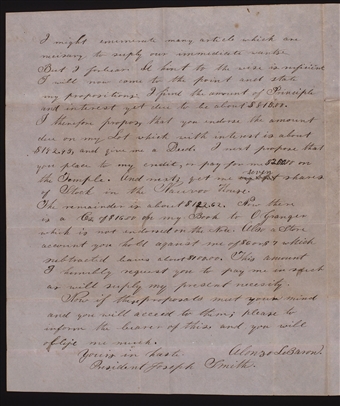 I might enumerate many article which are
necessary to suply our immediate wants.
But I forbear. A hint to the wise is sufficient
I will now come to the point and state
my propositions. I find the amount of Principle
and interest yet due to be about
I therefor propose that you endorse the amount
due on my Lot which with interest is about
and give me a Deed. I next propose that
you place to my credit, or pay for me
on the Temple. And next get me seven shares
of Stock in the Nauvoo House.
The remainder is about Now there
is a Cr of $15.00 on my Book to O Granger
which is not endorsed on the Note. Also a Store
account you hold against me of which
subtracted leaves about This amount
I humbly request you to pay me in such
as will suply my present necesity.
Now if these proposals meet your mind
and you will accced to them; please to
inform the bearer of this and you will
oblige me much.
Yours in hast. Alonzo LeBaron.
President Joseph Smith.